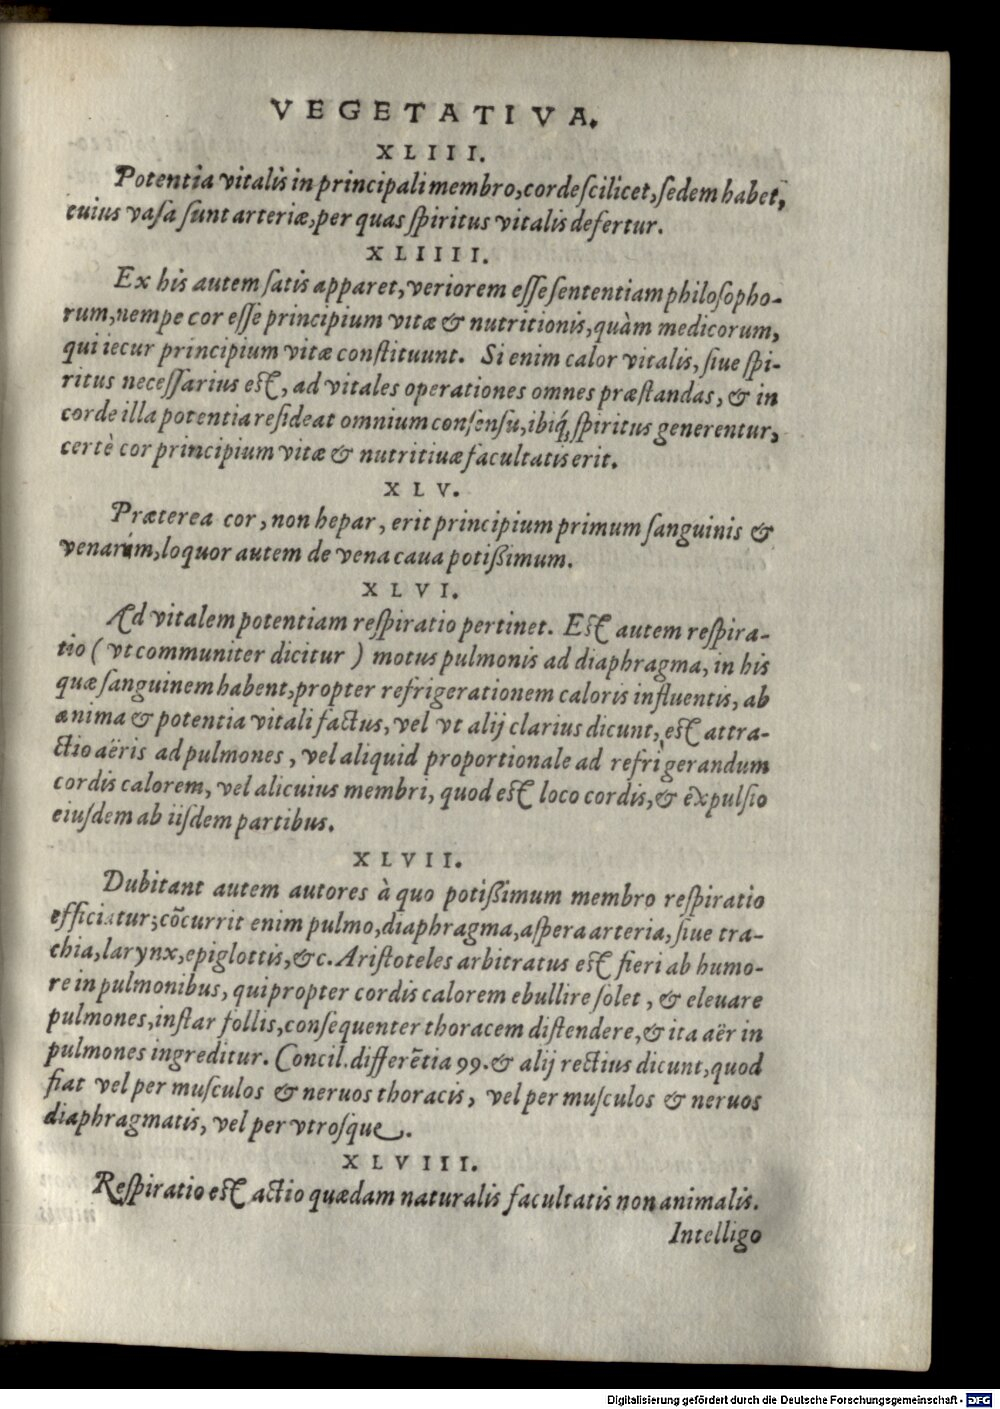 VEGETATIVA.
XLIII.
Potentia vitalis in principali membro, corde scilicet, sedem habet,
cuius vasa sunt arteriæ, per quas spiritus vitalis defertur.
XLIIII.
Ex his autem satis apparet, veriorem esse sententiam philosopho-
rum, nempe cor esse principium vitæ & nutritionis, quàm medicorum,
qui iecur principium vitæ constituunt. Si enim calor vitalis, siue spi-
ritus necessarius est, ad vitales operationes omnes præstandas, & in
corde illa potentia resideat omnium consensu, ibiq́, spiritus generentur,
certè cor principium vitæ & nutritiuæ facultatis erit.
XLV.
Præterea cor, non hepar, erit principium primum sanguinis &
venarum, loquor autem de vena caua potißimum.
XLVI.
Ad vitalem potentiam respiratio pertinet. Est autem respira-
tio ( vt communiter dicitur ) motus pulmonis ad diaphragma, in his
quæ sanguinem habent, propter refrigerationem caloris influentis, ab
anima & potentia vitali factus, vel vt alij clarius dicunt, est attra-
ctio aëris ad pulmones, vel aliquid proportionale ad refrigerandum
cordis calorem, vel alicuius membri, quod est loco cordis, & expulsio
eiusdem ab iisdem partibus.
XLVII.
Dubitant autem autores à quo potißimum membro respiratio
efficiatur; cõcurrit enim pulmo, diaphragma, aspera arteria, siue tra-
chia, larynx, epiglottis, &c. Aristoteles arbitratus est fieri ab humo-
re in pulmonibus, qui propter cordis calorem ebullire solet, & eleuare
pulmones, instar follis, consequenter thoracem distendere, & ita aër in
pulmones ingreditur. Concil. differẽtia 99. & alij rectius dicunt, quod
fiat vel per musculos & neruos thoracis, vel per musculos & neruos
diaphragmatis, vel per vtrosque.
XLVIII.
Respiratio est actio quædam naturalis facultatis non animalis.
Intelligo
Digitalisierung gefördert durch die Deutsche Forschungsgemeinschaft - DFG